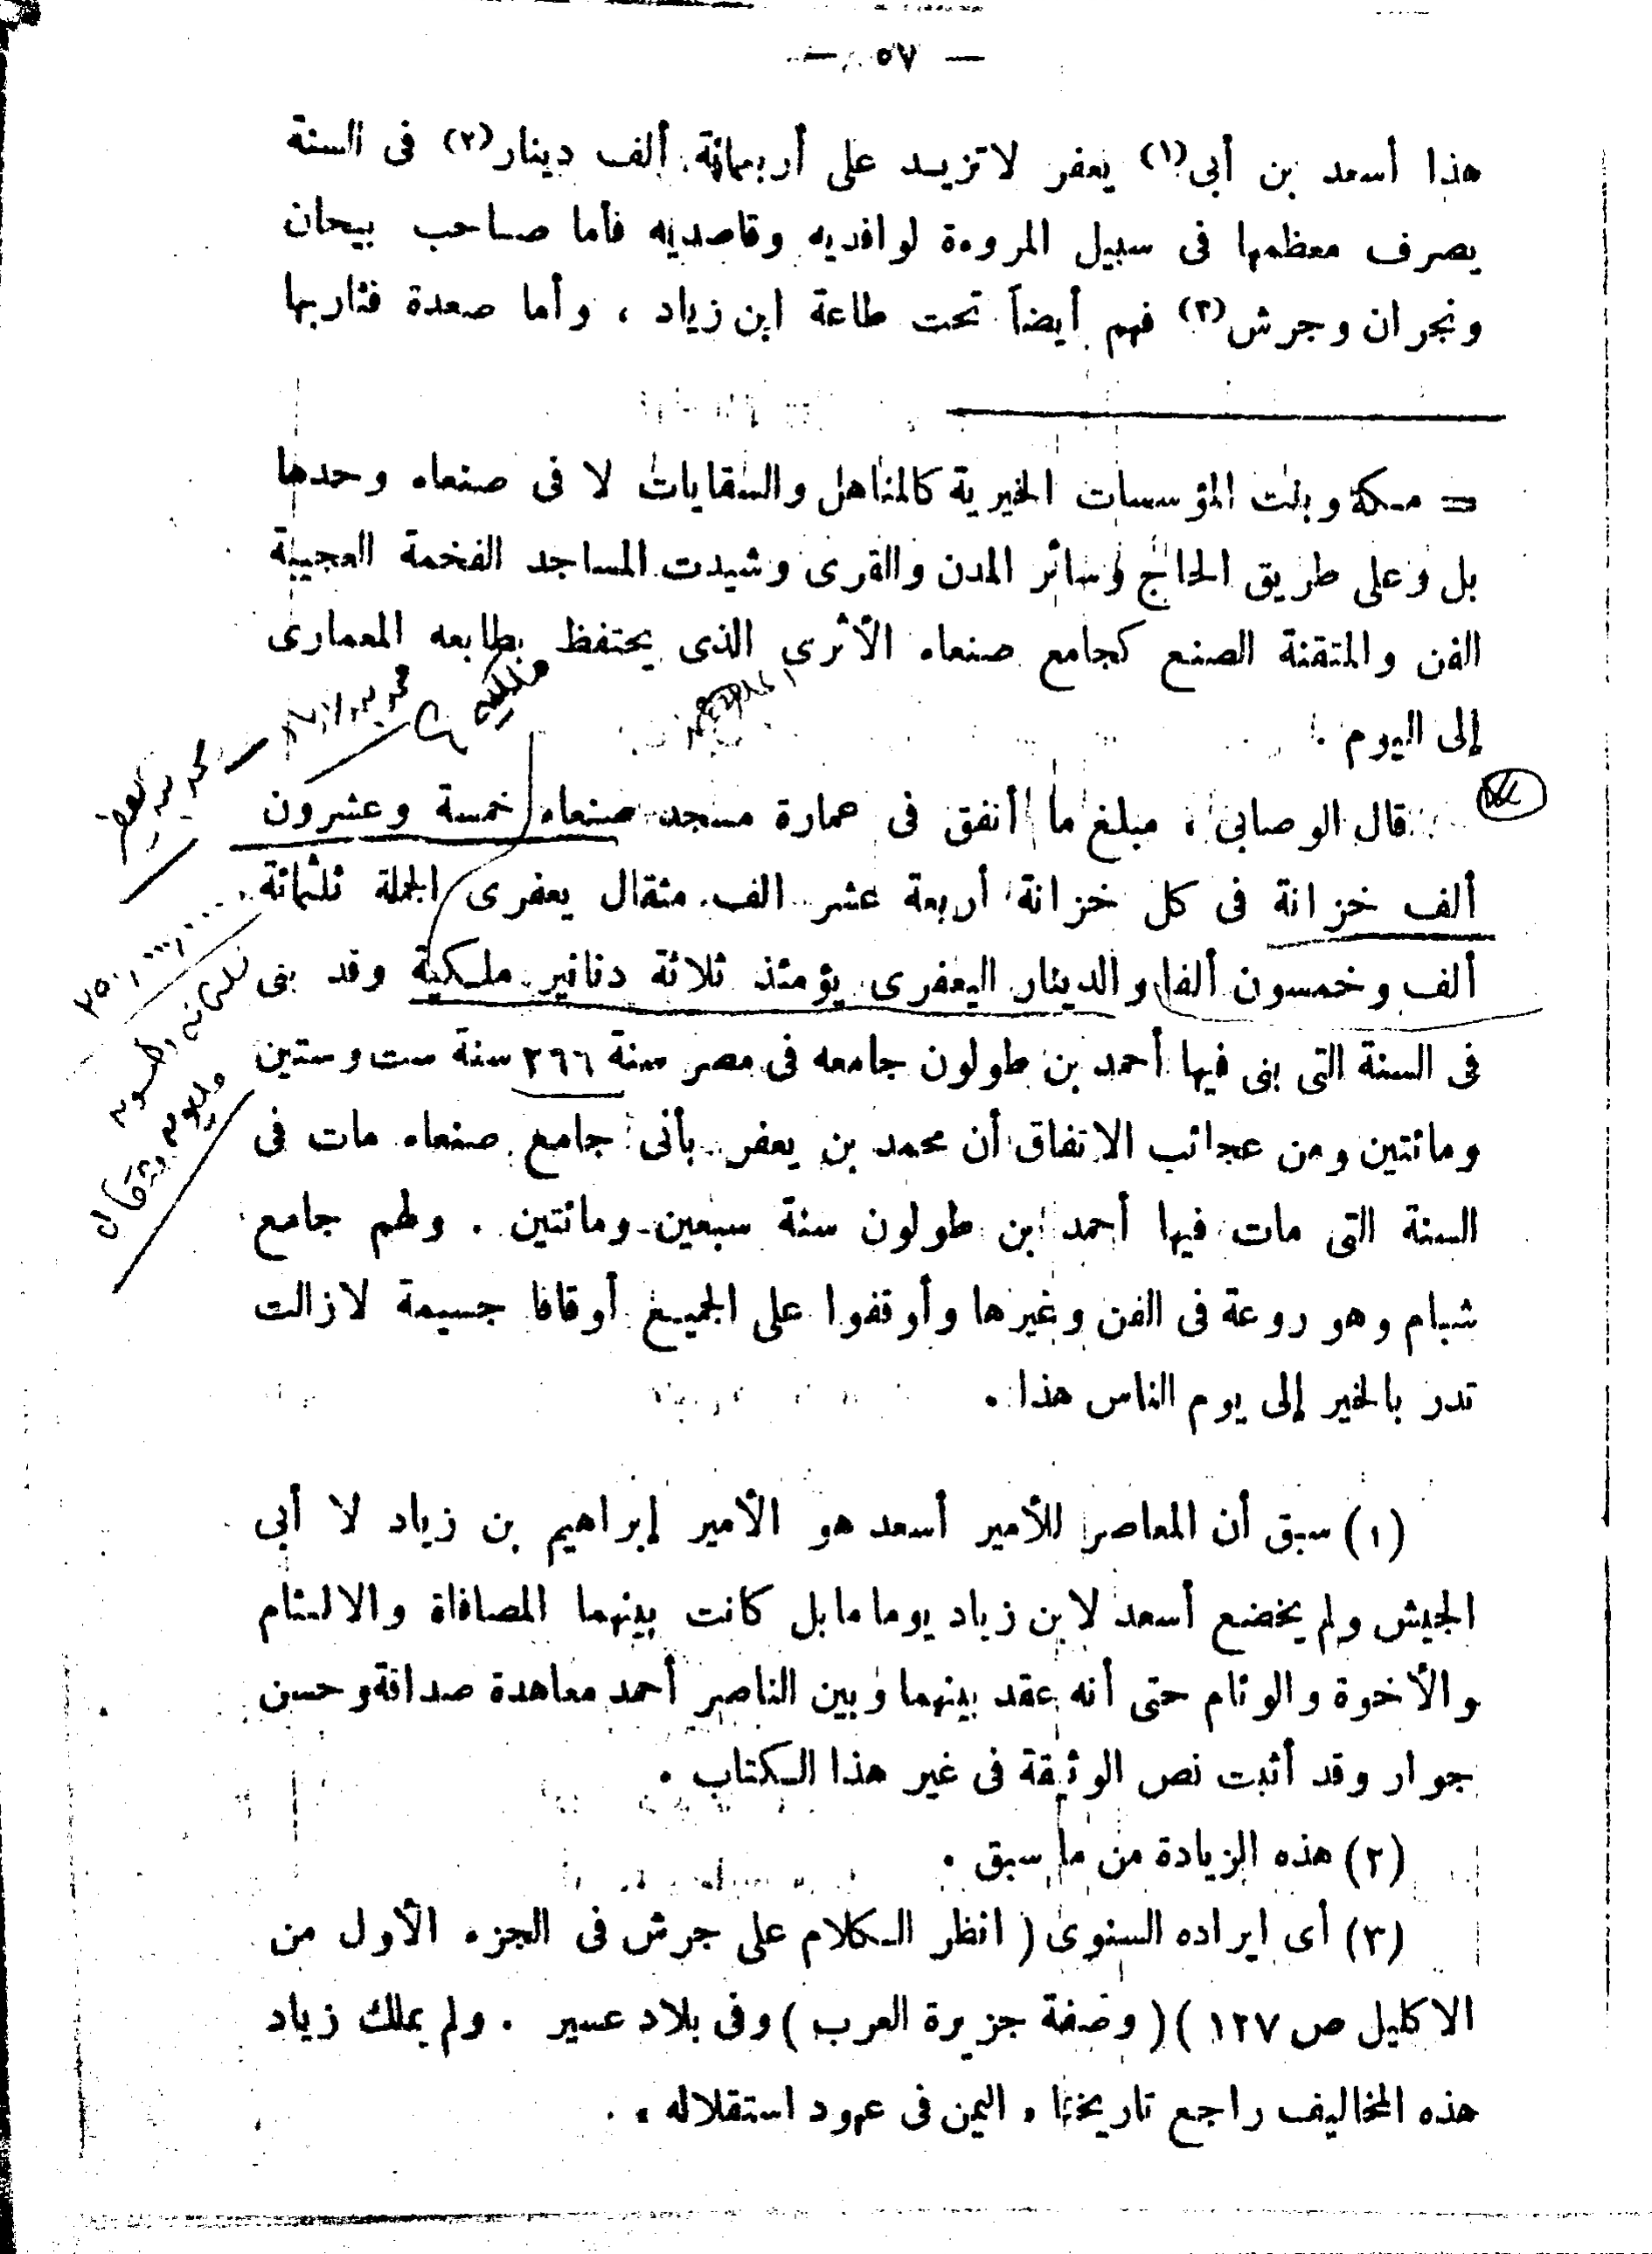 — ٥٧ —
هذا أسعد بن أبى(١) يعفر لا تزيد على أربعمائة ألف دينار(٢) فى السنة
يصرف معظمها فى سبيل المروءة لوافديه وقاصديه فأما صاحب بيحان
ونجران وجرش(٣) فهم أيضاً تحت طاعة ابن زياد ، وأما صعدة فثار بها
= مكة وبنت المؤسسات الخيرية كالمناهل والسقايات لا فى صنعاء وحدها
بل وعلى طريق الحاج وسائر المدن والقرى وشيدت المساجد الفخمة العجيبة
الفن والمتقنة الصنع كجامع صنعاء الأثرى الذى يحتفظ بطابعه المعمارى
إلى اليوم .
قال الوصابى ، مبلغ ما أنفق فى عمارة مسجد صنعاء خمسة وعشرون
ألف خزانة فى كل خزانة أربعة عشر الف مثقال يعفرى الجملة ثلثمائة
ألف وخمسون ألفا والدينار اليعفرى يؤمئذ ثلاثة دنانير ملكية وقد بنى
فى السنة التى بنى فيها أحمد بن طولون جامعه فى مصر سنة ٢٩٦ سنة ست وستين
ومائتين ومن عجائب الاتفاق أن محمد بن يعفر بأنى جامع صنعاء مات فى
السنة التى مات فيها أحمد ابن طولون سنة سبعين ومائتين . ولهم جامع
شبام وهو روعة فى الفن وغيرها وأوقفوا على الجميع أوقافا جسيمة لازالت
تدر بالخير إلى يوم الناس هذا .
(١) سبق أن المعاصر للأمير أسعد هو الأمير إبراهيم بن زياد لا أبى
الجيش ولم يخضع أسعد لابن زياد يوما ما بل كانت بينهما المصافاة والالتئام
والأخوة والوئام حتى أنه عقد بينهما وبين الناصر أحمد معاهدة صداقة وحسن
جوار وقد أثبت نص الوثيقة فى غير هذا الكتاب .
(٢) هذه الزيادة من ما سبق .
(٣) أى ايراده السنوى ( انظر الكلام على جرش فى الجزء الأول من
الاكليل ص ١٢٧ ) ( وصفة جزيرة العرب ) وفى بلاد عسير . ولم يملك زياد
هذه المخاليف راجع تاريخنا « اليمن فى عهود استقلاله » .
ثلثمائة وخمسون
مليون مثقال